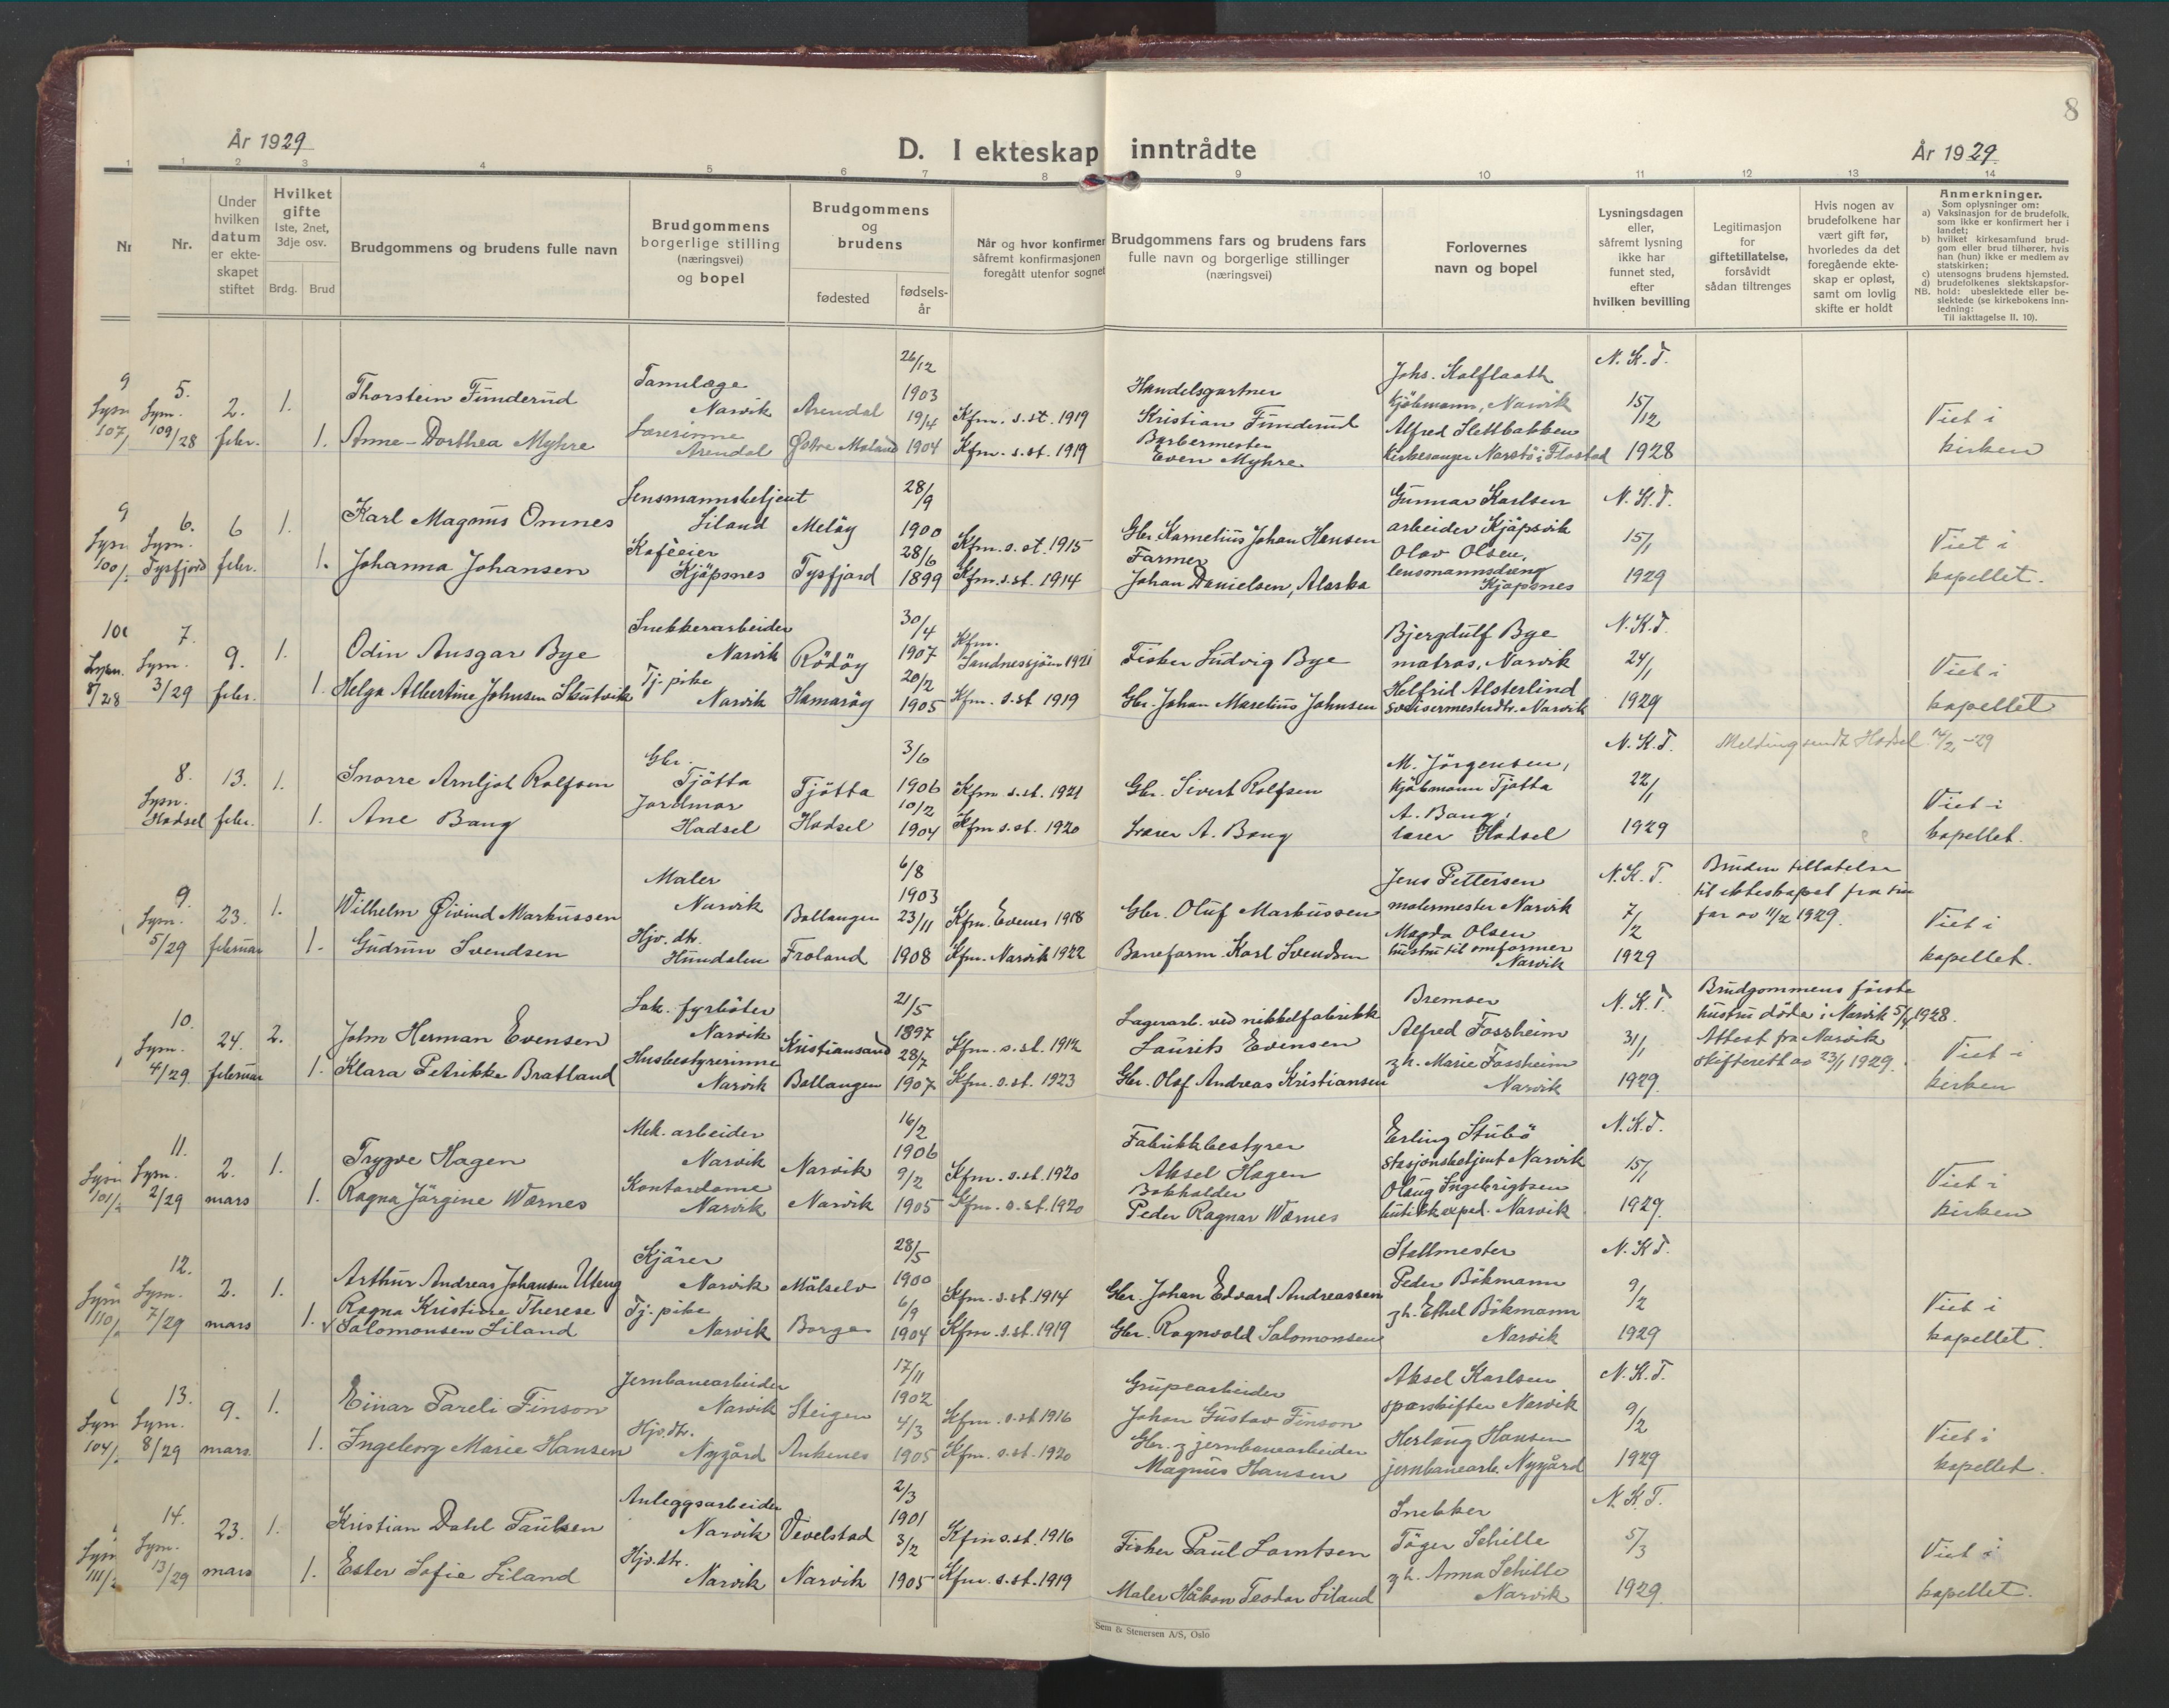 8
År 1929
D. I ekteskap inntrådte
År 1929.
1 1 2 3 4 5 6 7 8 9 10 11 12 13 14
Nr.
Under hvilken datum er ekteskapet stiftet
Hvilket gifte 1ste, 2net, 3dje osv.
Brdg. Brud
Brudgommens og brudens fulle navn
Brudgommens borgerlige stilling (næringsvei) og bopel
Brudgommens og brudens
fødested
fødselsår
Når og hvor konfirmer
såfremt konfirmasjonen
foregått utenfor sognet
Brudgommens fars og brudens fars fulle navn og borgerlige stillinger (næringsvei)
Forlovernes navn og bopel
Lysningsdagen eller, såfremt lysning ikke har funnet sted, efter hvilken bevilling
Legitimasjon for giftetillatelse, forsåvidt sådan tiltrenges
Hvis nogen av brudefolkene har vært gift før, hvorledes da det foregående ekteskap er opløst, samt om lovlig skifte er holdt
Anmerkninger.
Som oplysninger om:
a) Vaksinasjon for de brudefolk, som ikke er konfirmert her i landet;
b) hvilket kirkesamfund brudgom eller brud tilhører, hvis han (hun) ikke er medlem av statskirken;
c) utensogns brudens hjemsted.
d) brudefolkenes slektskapsforhold: ubeslektede eller beslektede (se kirkebokens Innledning:
NB. Til iakttagelse II. 10).
5.
Lysn. 109/28
2. febr.
1.
Thorstein Finnderud
Tannlæge
Narvik
Arendal
26/12 1903
Kfm. s.st. 1919
Handelsgartner
Kristian Finnderud
Johs. Kalflaath
Kjøbmann, Narvik
N.K.T. 15/12 1928
Viet i kirken
1. Anne-Dorthea Myhre
Lærerinne
Arendal
Østre Moland
19/4 1904
Kfm. s.st. 1919
Barbermester
Even Myhre
Alfred Slettbakken
Kirkesanger Narestø i Flostad
6.
Lysn. Tysfjord
6 febr.
1.
Karl Magnus Omnes
Lensmannsbetjent
Liland
Meløy
28/9 1900
Kfm. s.st. 1915
Gbr. Karnelius Johan Hansen
Gunnar Karlsen
arbeider Kjøpsvik
N.K.T. 15/1 1929
Viet i kapellet.
1. Johanna Johansen
Kaféeier
Kjøpsnes
Tysfjord
28/6 1899
Kfm. s.st. 1914
Farmer
Johan Danielsen, Alaska
Olav Olsen,
lensmannsdreng
Kjøpsnes
7.
Lysn. 3/29
9. febr.
1.
Odin Ansgar Bye
Snekkerarbeider
Narvik
Rödöy
30/4 1907
Kfm. Sandnessjöen 1921
Fisker Ludvig Bye
Bjergdulf Bye
matros, Narvik
N.K.T. 24/1 1929
Viet i kapellet
1. Helga Albertine Johnsen Skutvik
Tj. pike
Narvik
Hamaröy
20/2 1905
Kfm. s.st 1919
Gbr. Johan Maretius Johnsen
Helfrid Alsterlind
sveisermesterdtr. Narvik
8.
Lysn. Hadsel
13. febr.
1.
Snorre Arnljot Rolfsen
Gbr.
Tjötta
Tjötta
3/6 1906
Kfm s.st. 1921
Gbr. Sivert Rolfsen
M. Jörgensen,
kjöbmann Tjötta
N.K.T. 22/1 1929
Melding sendt Hadsel 14/2 -29
Viet i kapellet.
1. Ane Bang
Jordmor
Hadsel
Hadsel
10/2 1904
Kfm s.st. 1920
Lærer A. Bang
A. Bang,
lærer Hadsel
9.
Lysn. 5/29
23. februar
1.
Wilhelm Øivind Markussen
Maler
Narvik
Ballangen
6/8 1903
Kfm. Evenes 1918
Gbr. Oluf Markussen
Jens Pettersen
malermester Narvik
N.K.T. 7/2 1929
Bruden tillatelse
til ekteskapet fra sin
far av 11/2 1929.
Viet i kapellet.
1. Gudrun Svendsen
Hjv. dtr.
Hundalen
Froland
23/11 1908
Kfm. Narvik 1922
Baneform. Karl Svendsen
Magda Olsen
hustru til omformer
Narvik
10.
Lysn. 4/29
24. februar
2.
John Herman Evensen
Lok. fyrböter
Narvik
Kristiansand
21/5 1897
Kfm. s.st. 1912
Lagerarb. ved nikkelfabrikk
Laurits Evensen
Bremser
Alfred Fossheim
N.K.T 31/1 1929.
Brudgommens förste
hustru döde i Narvik 5/4 1928.
Attest fra Narvik
skifterett av 23/1 1929.
Viet i kirken
1. Klara Petrikke Bratland
Husbestyrerinne
Narvik
Ballangen
28/7 1907
Kfm. s.st. 1923
Gbr. Olaf Andreas Kristiansen
g h. Marie Fossheim
Narvik
11.
Lysn. 2/29
2. mars
1.
Trygve Hagen
Mek. arbeider
Narvik
Narvik
16/2 1906
Kfm. s.st. 1920
Fabrikkbestyrer
Aksel Hagen
Erling Stubö
stasjonsbetjent Narvik
N.K.T. 15/1 1929.
Viet i kirken
1. Ragna Jörgine Wærnes
Kontordame
Narvik
Narvik
9/2 1905
Kfm. s.st. 1920
Bokholder
Peder Ragnar Wærnes
Olaug Ingebrigtsen
butikkexped. Narvik
12.
Lysn. 7/29
2. mars
1.
Arthur Andreas Johansen Uteng
Kjörer
Narvik
Målselv
28/5 1900
Kfm. s.st. 1914
Gbr. Johan Edvard Andreassen
Stallmester
Peder Bökmann
N.K.T. 9/2 1929
Viet i kapellet.
1. Ragna Kristine Therese
Salomonsen Liland
Tj. pike
Narvik
Borge
6/9 1904
Kfm. s.st. 1919
Gbr. Ragnvald Salomonsen
g h. Ethel Bökmann
Narvik
13.
Lysn. 8/29
9. mars.
1.
Einar Pareli Finson
Jernbanearbeider
Narvik
Steigen
17/11 1902
Kfm. s.st 1916
Grupearbeider
Johan Gustav Finson
Aksel Karlsen
sporskifter Narvik
N.K.T. 9/2 1929
Viet i kapellet.
1. Ingeborg Marie Hansen
Hjv. dtr.
Nygård
Ankenes
4/3 1905
Kfm. s.st. 1920
Gbr. g jernbanearbeider
Magnus Hansen
Herlaug Hansen
jernbanearb. Nygård
14.
Lysn. 13/29
23. mars
1.
Kristian Dahl Paulsen
Anleggsarbeider
Narvik
Vevelstad
2/3 1901
Kfm s.st. 1916
Fisker Paul Lorntsen
Snekker
Töger Schille
N.K.T. 5/3 1929.
Viet i kapellet.
1. Ester Sofie Liland
Hjv. dtr.
Narvik
Narvik
3/2 1905
Kfm. s.st. 1919
Maler Håkon Teodor Liland
g h. Anna Schille
Narvik
Sem & Stenersen A/S, Oslo